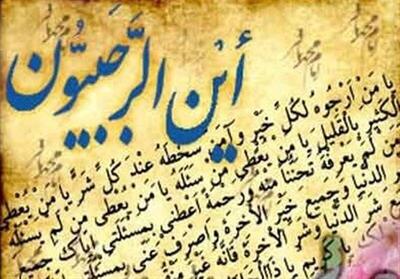 أَيْنَ الرَّجَبِيُّون
يا مَنْ أَرْجُوهُ لِكُلِّ خَيْرٍ وَآمَنُ سَخَطَهُ عِنْدَ كُلِّ شَرٍّ يا مَنْ يُعْطِي
الْكَثِيرَ بِالْقَلِيلِ يا مَنْ يُعْطِي مَنْ سَئَلَهُ يا مَنْ يُعْطِي مَنْ لَمْ يَسْئَلْهُ
مَنْ لَمْ يَعْرِفْهُ تَحَنُّناً مِنْهُ وَرَحْمَةً أَعْطِنِي بِمَسْئَلَتِي إِيَّاكَ جَمِيعَ
خَيْرِ الدُّنْيا وَجَمِيعَ خَيْرِ الْآخِرَةِ وَاصْرِفْ عَنِّي بِمَسْئَلَتِي
شَرِّ الدُّنْيا وَشَرِّ الْآخِرَةِ فَإِنَّهُ غَيْرُ
يا كَرِيمُ يا ذَا